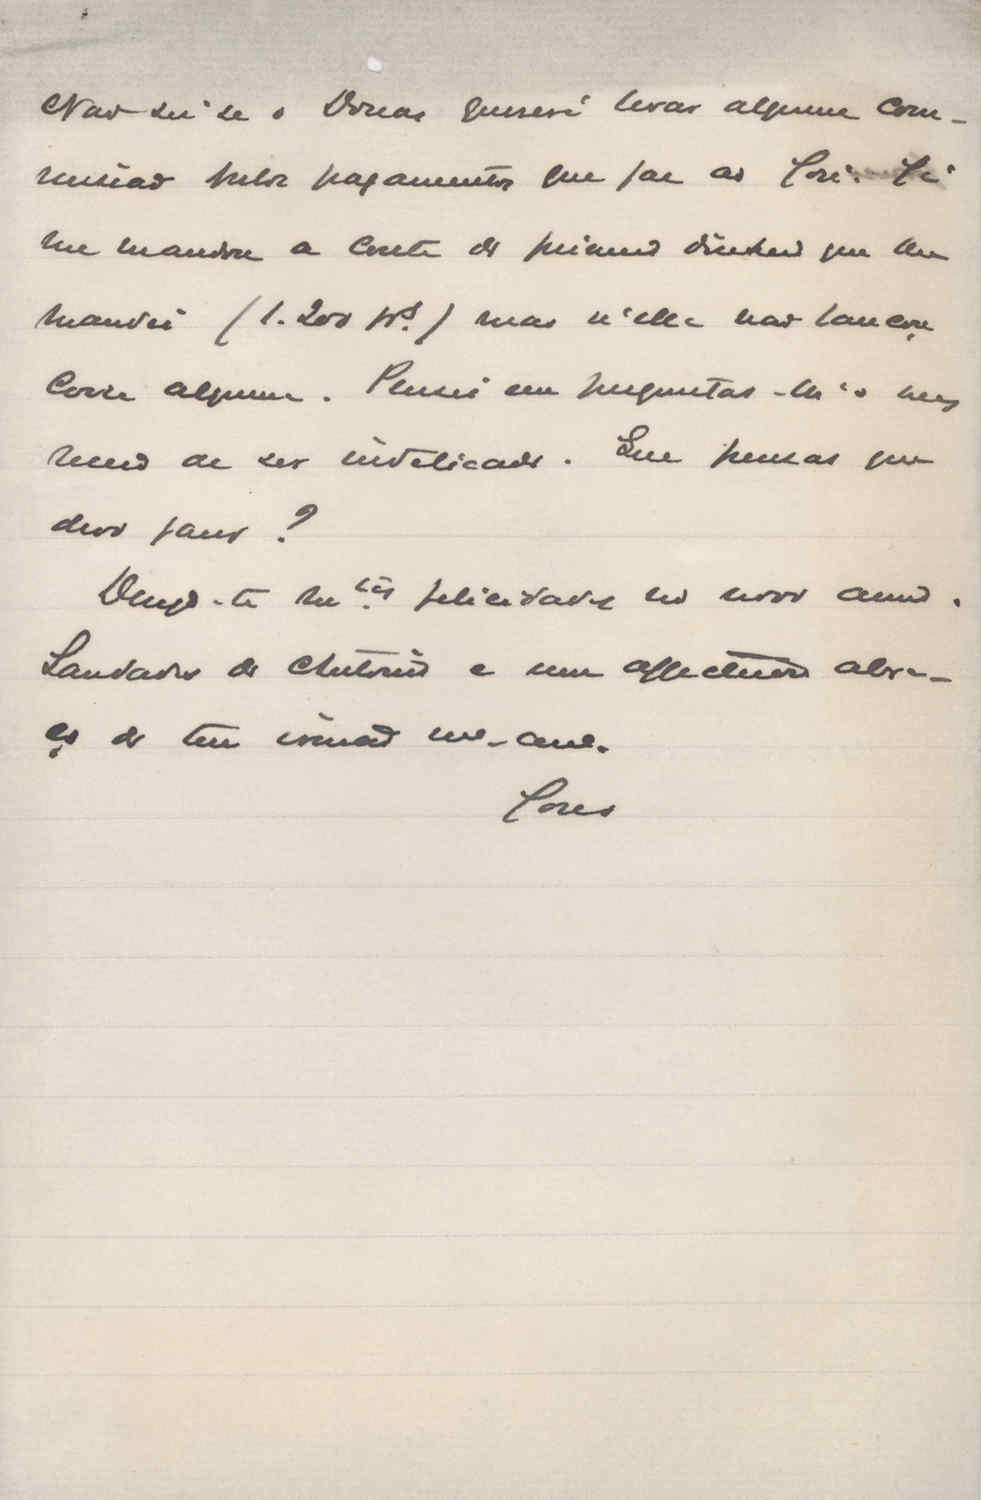 Não sei se o Dorcas quererá levar alguma com-
missão pelos pagamentos que faz ao José. Já
me mandou a conta do primeiro dinheiro que lhe
mandei (1.200 frs.) mas n'ella não lançou
coisa alguma. Pensei em perguntar-lh'o mas
receio de ser indelicado. Que pensas que
devo fazer?
Desejo-te mtas felicidades no novo anno.
Saudades do Antonio e um affectuoso abra-
ço do teu irmão mto amo.